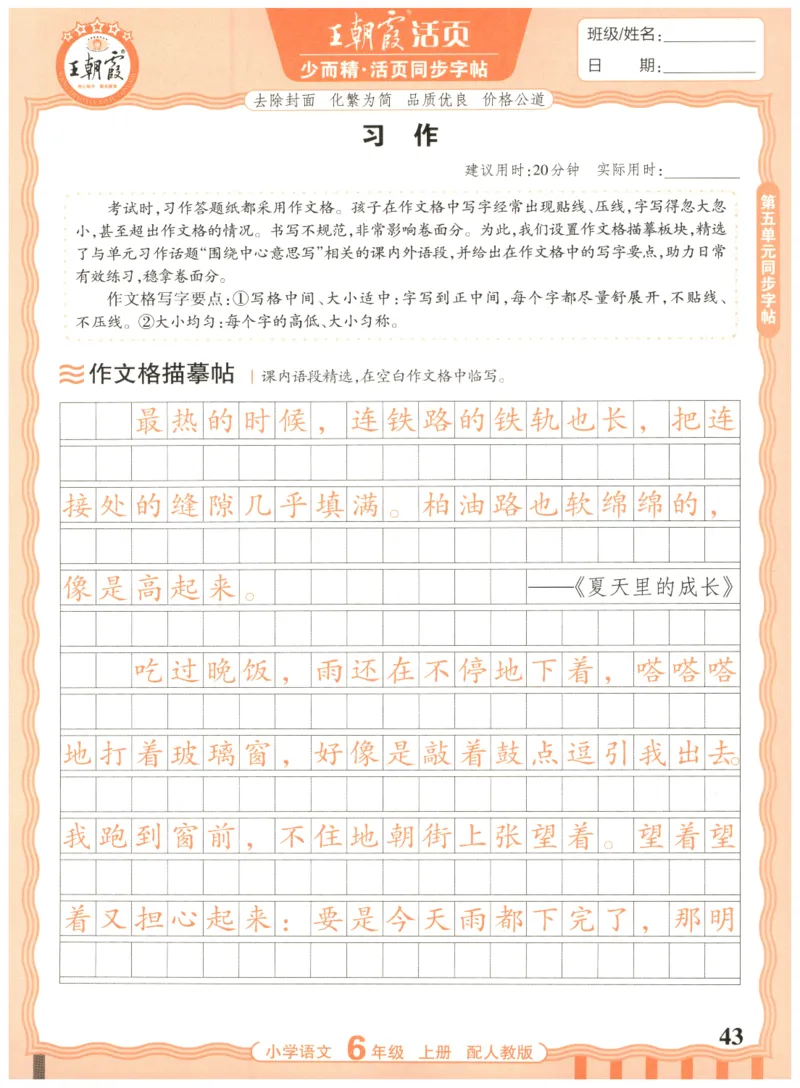 王朝霞
王朝霞活页
少而精·活页同步字帖
班级/姓名:
日 期:
去除封面 化繁为简 品质优良 价格公道
习 作
建议用时:20分钟 实际用时:
考试时,习作答题纸都采用作文格。孩子在作文格中写字经常出现贴线、压线,字写得忽大忽
小,甚至超出作文格的情况。书写不规范,非常影响卷面分。为此,我们设置作文格描摹板块,精选
了与单元习作话题“围绕中心意思写”相关的课内外语段,并给出在作文格中的写字要点,助力日常
有效练习,稳拿卷面分。
作文格写字要点:①写格中间、大小适中:字写到正中间,每个字都尽量舒展开,不贴线、
不压线。②大小均匀:每个字的高低、大小匀称。
第五单元同步字帖
作文格描摹帖 课内语段精选,在空白作文格中临写。
最热的时候,连铁路的铁轨也长,把连
接处的缝隙几乎填满。柏油路也软绵绵的,
像是高起来。 ——《夏天里的成长》
吃过晚饭,雨还在不停地下着,嗒嗒嗒
地打着玻璃窗,好像是敲着鼓点逗引我出去。
我跑到窗前,不住地朝街上张望着。望着望
着又担心起来:要是今天雨都下完了,那明
43
小学语文 6年级 上册 配人教版